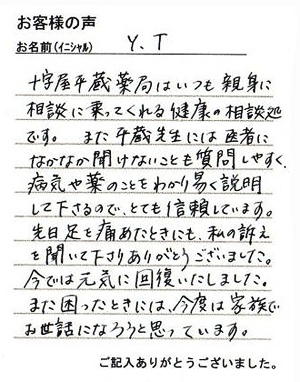 お客様の声
お名前(イニシャル) Y.T
十字屋平蔵薬局はいつも親身に
相談に乗ってくれる健康の相談処
です。また平蔵先生には医者に
なかなか聞けないことも質問しやすく、
病気や薬のことをわかり易く説明
して下さるので、とても信頼しています。
先日足を痛めたときにも、私の訴え
を聞いて下さりありがとうございました。
今では元気に回復いたしました。
また困ったときには、今度は家族で
お世話になろうと思っています。
ご記入ありがとうございました。